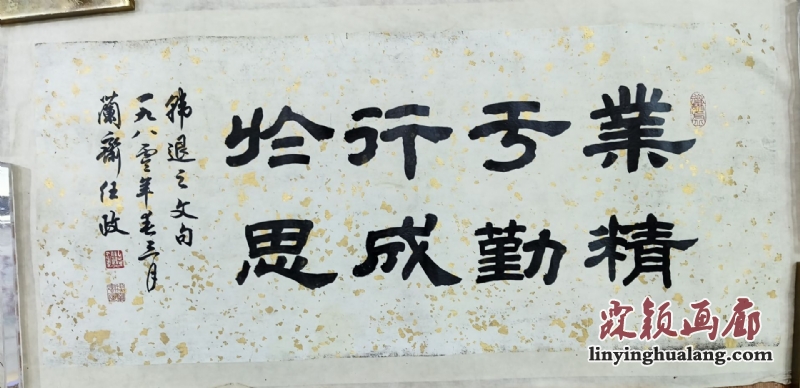 業精
于勤
行成
於思
韩退之文句
一九八零年春三月
蘭齋任政
霖颖画廊
linyinghualang.com